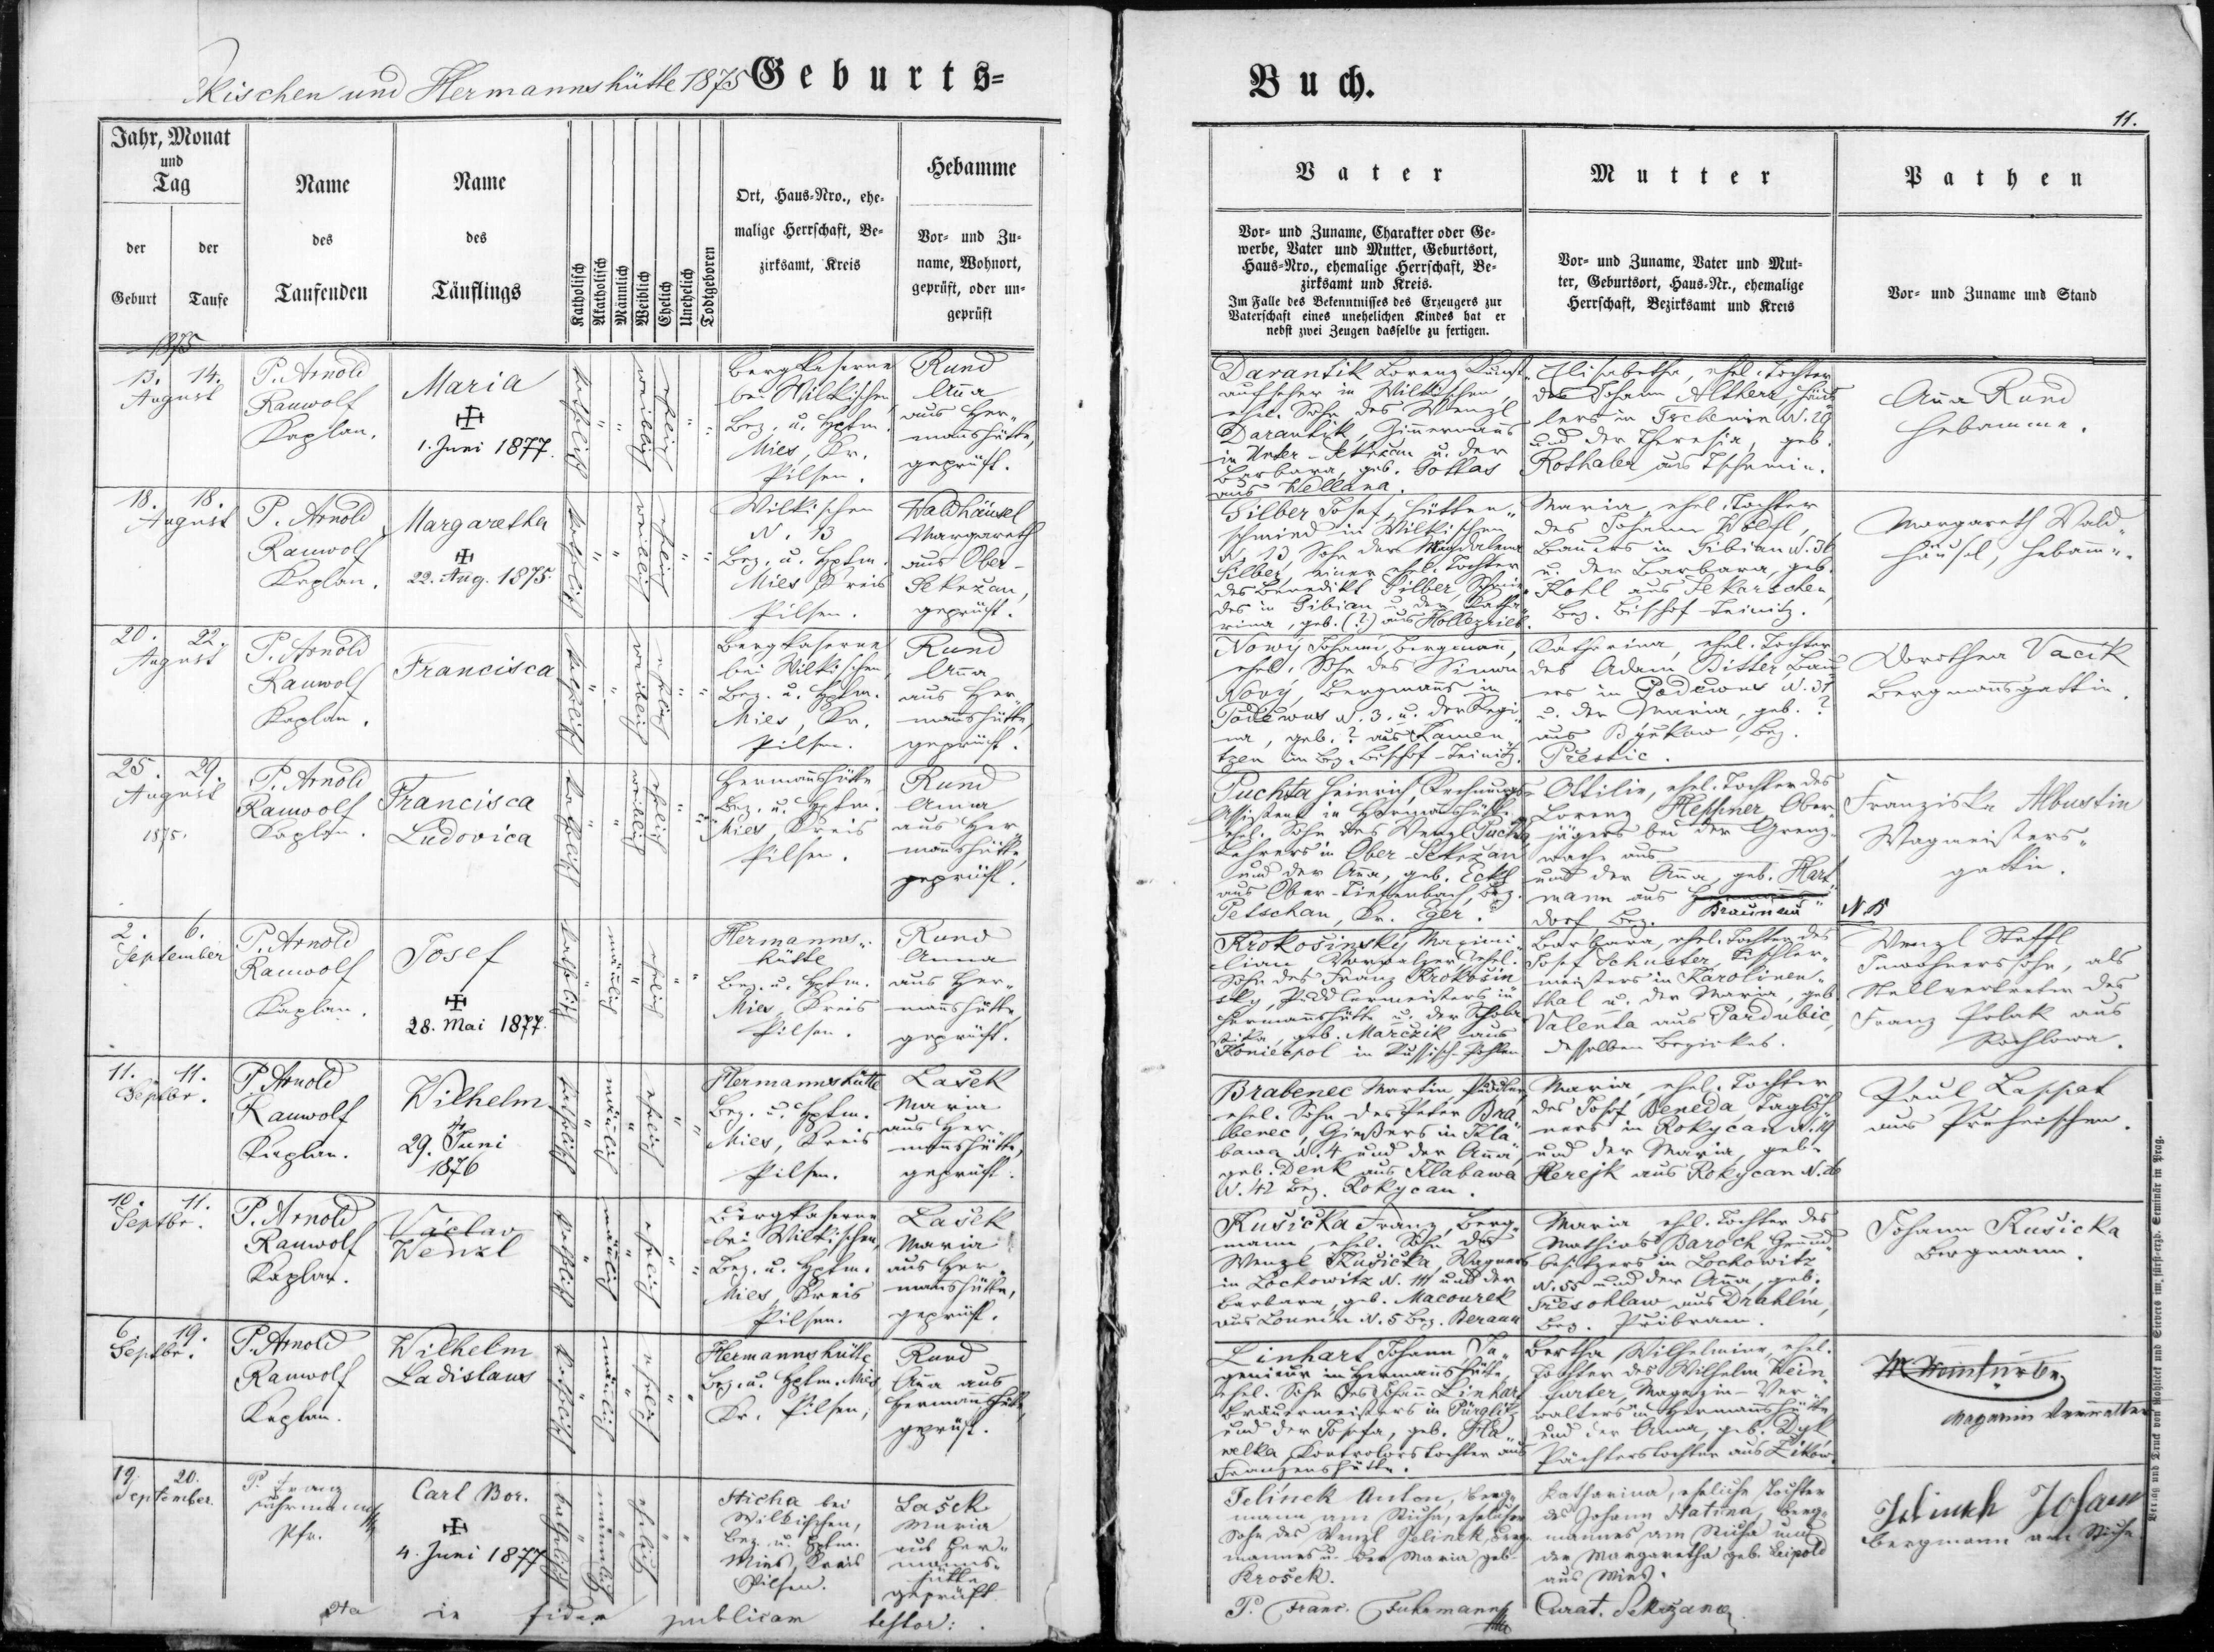 Wilkischen und Hermannshütte 1875 Geburts=
Buch.
11.
Jahr, Monat
und
Tag
der
Geburt
der
Taufe
Name
des
Taufenden
Name
des
Täuflings
Katholisch
Akatholisch
Männlich
Weiblich
Ehelich
Unehelich
Todtgeboren
Ort, Haus=Nro., ehe=
malige Herrschaft, Be=
zirksamt, Kreis
Hebamme
Vor= und Zu=
name, Wohnort,
geprüft, oder un=
geprüft
Vater
Vor= und Zuname, Charakter oder Ge=
werbe, Vater und Mutter, Geburtsort,
Haus=Nro., ehemalige Herrschaft, Be=
zirksamt und Kreis.
Im Falle des Bekenntnisses des Erzeugers zur
Vaterschaft eines unehelichen Kindes hat er
nebst zwei Zeugen dasselbe zu fertigen.
Mutter
Vor= und Zuname, Vater und Mut=
ter, Geburtsort, Haus=Nr., ehemalige
Herrschaft, Bezirksamt und Kreis
Pathen
Vor= und Zuname und Stand
1875
13. 14.
August
P. Arnold
Rauwolf
Kaplan.
Maria
1. Juni 1877.
katholisch
weiblich
ehelich
Bergkaserne
bei Wilkischen
Bez. u. Hptm.
Mies, Kr.
Pilsen.
Rund
Anna
aus Her„
mannshütte,
geprüft.
Darantik Lorenz Kunst„
aufseher in Wilkischen,
ehel. Sohn des Wenzl
Darantik, Zimmermanns
in Unter-Sekeřan u. der
Barbara, geb. Gottas
aus Wellana.
Elisabetha, ehel. Tochter
des Johann Altherr, Häus„
lers in Tschemin N. 29
und der Theresia, geb.
Rothaler aus Tschemin.
Anna Rund
Hebamme.
18. 18.
August
P. Arnold
Rauwolf
Kaplan.
Margaretha
22. Aug. 1875.
katholisch
weiblich
ehelich
Wilkischen
N. 13
Bez. u. Hptm.
Mies Kreis
Pilsen.
Waldhäusel
Margareth
aus Ober-
Sekeřan,
geprüft.
Silber Josef, Hütten„
schmied in Wilkischen
N. 13, Sohn der Magdalena
Silber, einer ehel. Tochter
des Benedikt Silber, Schmie„
des in Gibian u. der Katha„
rina, geb. (?) aus Hollezrieb.
Maria, ehel. Tochter
des Johann Wölfl,
Bauers in Gibian N. 36
u. der Barbara, geb.
Kohl aus Sekerschen,
Bez. Bischof-Teinitz.
Margareth Wald„
häusel, Hebamme.
20. 22.
August
P. Arnold
Rauwolf
Kaplan.
Francisca
katholisch
weiblich
ehelich
Bergkaserne
bei Wilkischen,
Bez. u. Hptm.
Mies, Kr.
Pilsen.
Rund
Anna
aus Her„
mannshütte,
geprüft.
Nowý Johann, Bergmann,
ehel. Sohn des Simon
Nový, Bergmanns in
Podewus N. 3. u. der Regi„
na, geb. ? aus Kamen„
tzen im Bez. Bischof-Teinitz.
Katharina, ehel. Tochter
des Adam Bitter, Bau„
ers in Podewus N. 31
u. der Maria, geb. ?
aus Býukow, Bez.
Přestic.
Dorothea Vacik
Bergmannsgattin.
25. 29.
August
1875.
P. Arnold
Rauwolf
Kaplan.
Francisca
Ludovica
katholisch
weiblich
ehelich
Hermannshütte
Bez. u. Hptm.
Mies, Kreis
Pilsen.
Rund
Anna
aus Her„
mannshütte,
geprüft.
Puchta Heinrich, Rechnungs„
Assistent in Hermannshütte,
ehel. Sohn des Wenzl Puchta
Lehrers in Ober-Sekeřan
und der Anna, geb. Eckl
aus Ober-Tiefenbach, Bez.
Petschau, Kr. Eger.
Ottilie, ehel. Tochter des
Lorenz Heppner, Ober„
jägers bei der Grenz„
wache aus
und der Anna, geb. Hart„
mann aus Braunau
dorf, Bez.
N B
Franziska Albustin
Wagmeisters„
gattin.
2. 6.
September
P. Arnold
Rauwolf
Kaplan.
Josef
28. Mai 1877.
katholisch
männlich
ehelich
Hermanns„
hütte
Bez. u. Hptm.
Mies, Kreis
Pilsen.
Rund
Anna
aus Her„
mannshütte,
geprüft.
Krokosinský Maximi„
lian Vorwalzer, ehel.
Sohn des Franz Krokosin„
sky, Puddlermeisters in
Hermannshütte u. der Schola„
stika, geb. Marčzik aus
Koniecpol in Russisch-Pohlen
Barbara, ehel. Tochter des
Josef Schuster, Tischler„
meisters in Karolinen„
thal u. der Maria, geb.
Valenta aus Pardubic,
desselben Bezirkes.
Wenzl Steffl
Inwohnerssohn, als
Stellvertreter des
Franz Polak aus
Rochlowa.
11. 11.
Septbr.
P. Arnold
Rauwolf
Kaplan.
Wilhelm
29. Juni
1876
katholisch
männlich
ehelich
Hermannshütte
Bez. u. Hptm.
Mies, Kreis
Pilsen.
Lašek
Maria
aus Her„
mannshütte,
geprüft.
Brabenec Martin Puddler,
ehel. Sohn des Peter Bra„
benec, Gießers in Kla„
bawa N. 4 und der Anna,
geb. Denk aus Klabawa
N. 42 Bez. Rokycan.
Maria, ehel. Tochter
des Josef Beneda, Taglöh„
ners in Rokycan N. 19
und der Maria, geb.
Herejk aus Rokycan N. 26
Paul Laschat
aus Preheischen.
10. 11.
Septbr.
P. Arnold
Rauwolf
Kaplan.
Václav
Wenzl
katholisch
männlich
ehelich
Bergkaserne
bei Wilkischen,
Bez. u. Hptm.
Mies, Kreis
Pilsen.
Lašek
Maria
aus Her„
mannshütte,
geprüft.
Kusička Franz, Berg„
mann, ehel. Sohn des
Wenzl Kusička, Wagners
in Lochowitz N. 111 und der
Barbara, geb. Macourek
aus Lounin N. 5 Bez. Beraun
Maria, ehel. Tochter des
Mathias Baroch Grund„
besitzers in Lochowitz
N. 55 und der Anna, geb.
Třesohlaw aus Drahlin,
Bez. Přibram.
Johann Kusicka
Bergmann.
6. 19.
Septbr.
P. Arnold
Rauwolf
Kaplan.
Wilhelm
Ladislaus
katholisch
männlich
ehelich
Hermannshütte
Bez. u. Hptm. Mies
Kr. Pilsen,
Rund
Anna aus
Hermannshütte,
geprüft.
Linhart Johann In„
genieur in Hermannshütte,
ehel. Sohn des Johann Linhart
Bräuermeisters in Pürglitz
und der Josefa, geb. Ha„
welka, Kontrolorstochter aus
Franzenshütte.
Bertha, Wilhelmine, ehel.
Tochter des Wilhelm Wein„
furter, Magazin-Ver„
walters in Hermannshütte
und der Anna, geb. Dyk
Pächterstochter aus Žikow.
W Weinfurter
Magazins Verwalter
19. 20.
September.
P. Franz
Fuhrmann
Pfr.
Carl Bor.
4. Juni 1877
katholisch
männlich
ehelich
Sticha bei
Wilkischen,
Bez. u. Hptm.
Mies, Kreis
Pilsen.
Lašek
Maria
aus Her„
manns„
hütte
geprüft
Jelinek Anton, Berg„
mann am Sticha, ehelicher
Sohn des Wenzl Jelinek, Berg„
mannes u. der Maria geb.
Krošek.
Katharina, eheliche Tochter
des Johann Hatina, Berg„
mannes am Sticha und
der Margaretha geb. Leipold
aus Mies.
Jelinek Johann
Bergmann am Sticha
Ita in fidem publicam testor:
P. Franc. Fuhrmann Curat. Sekeřane
Verlag und Druck von Rohliček und Sievers im fürst-erzb. Seminär in Prag.